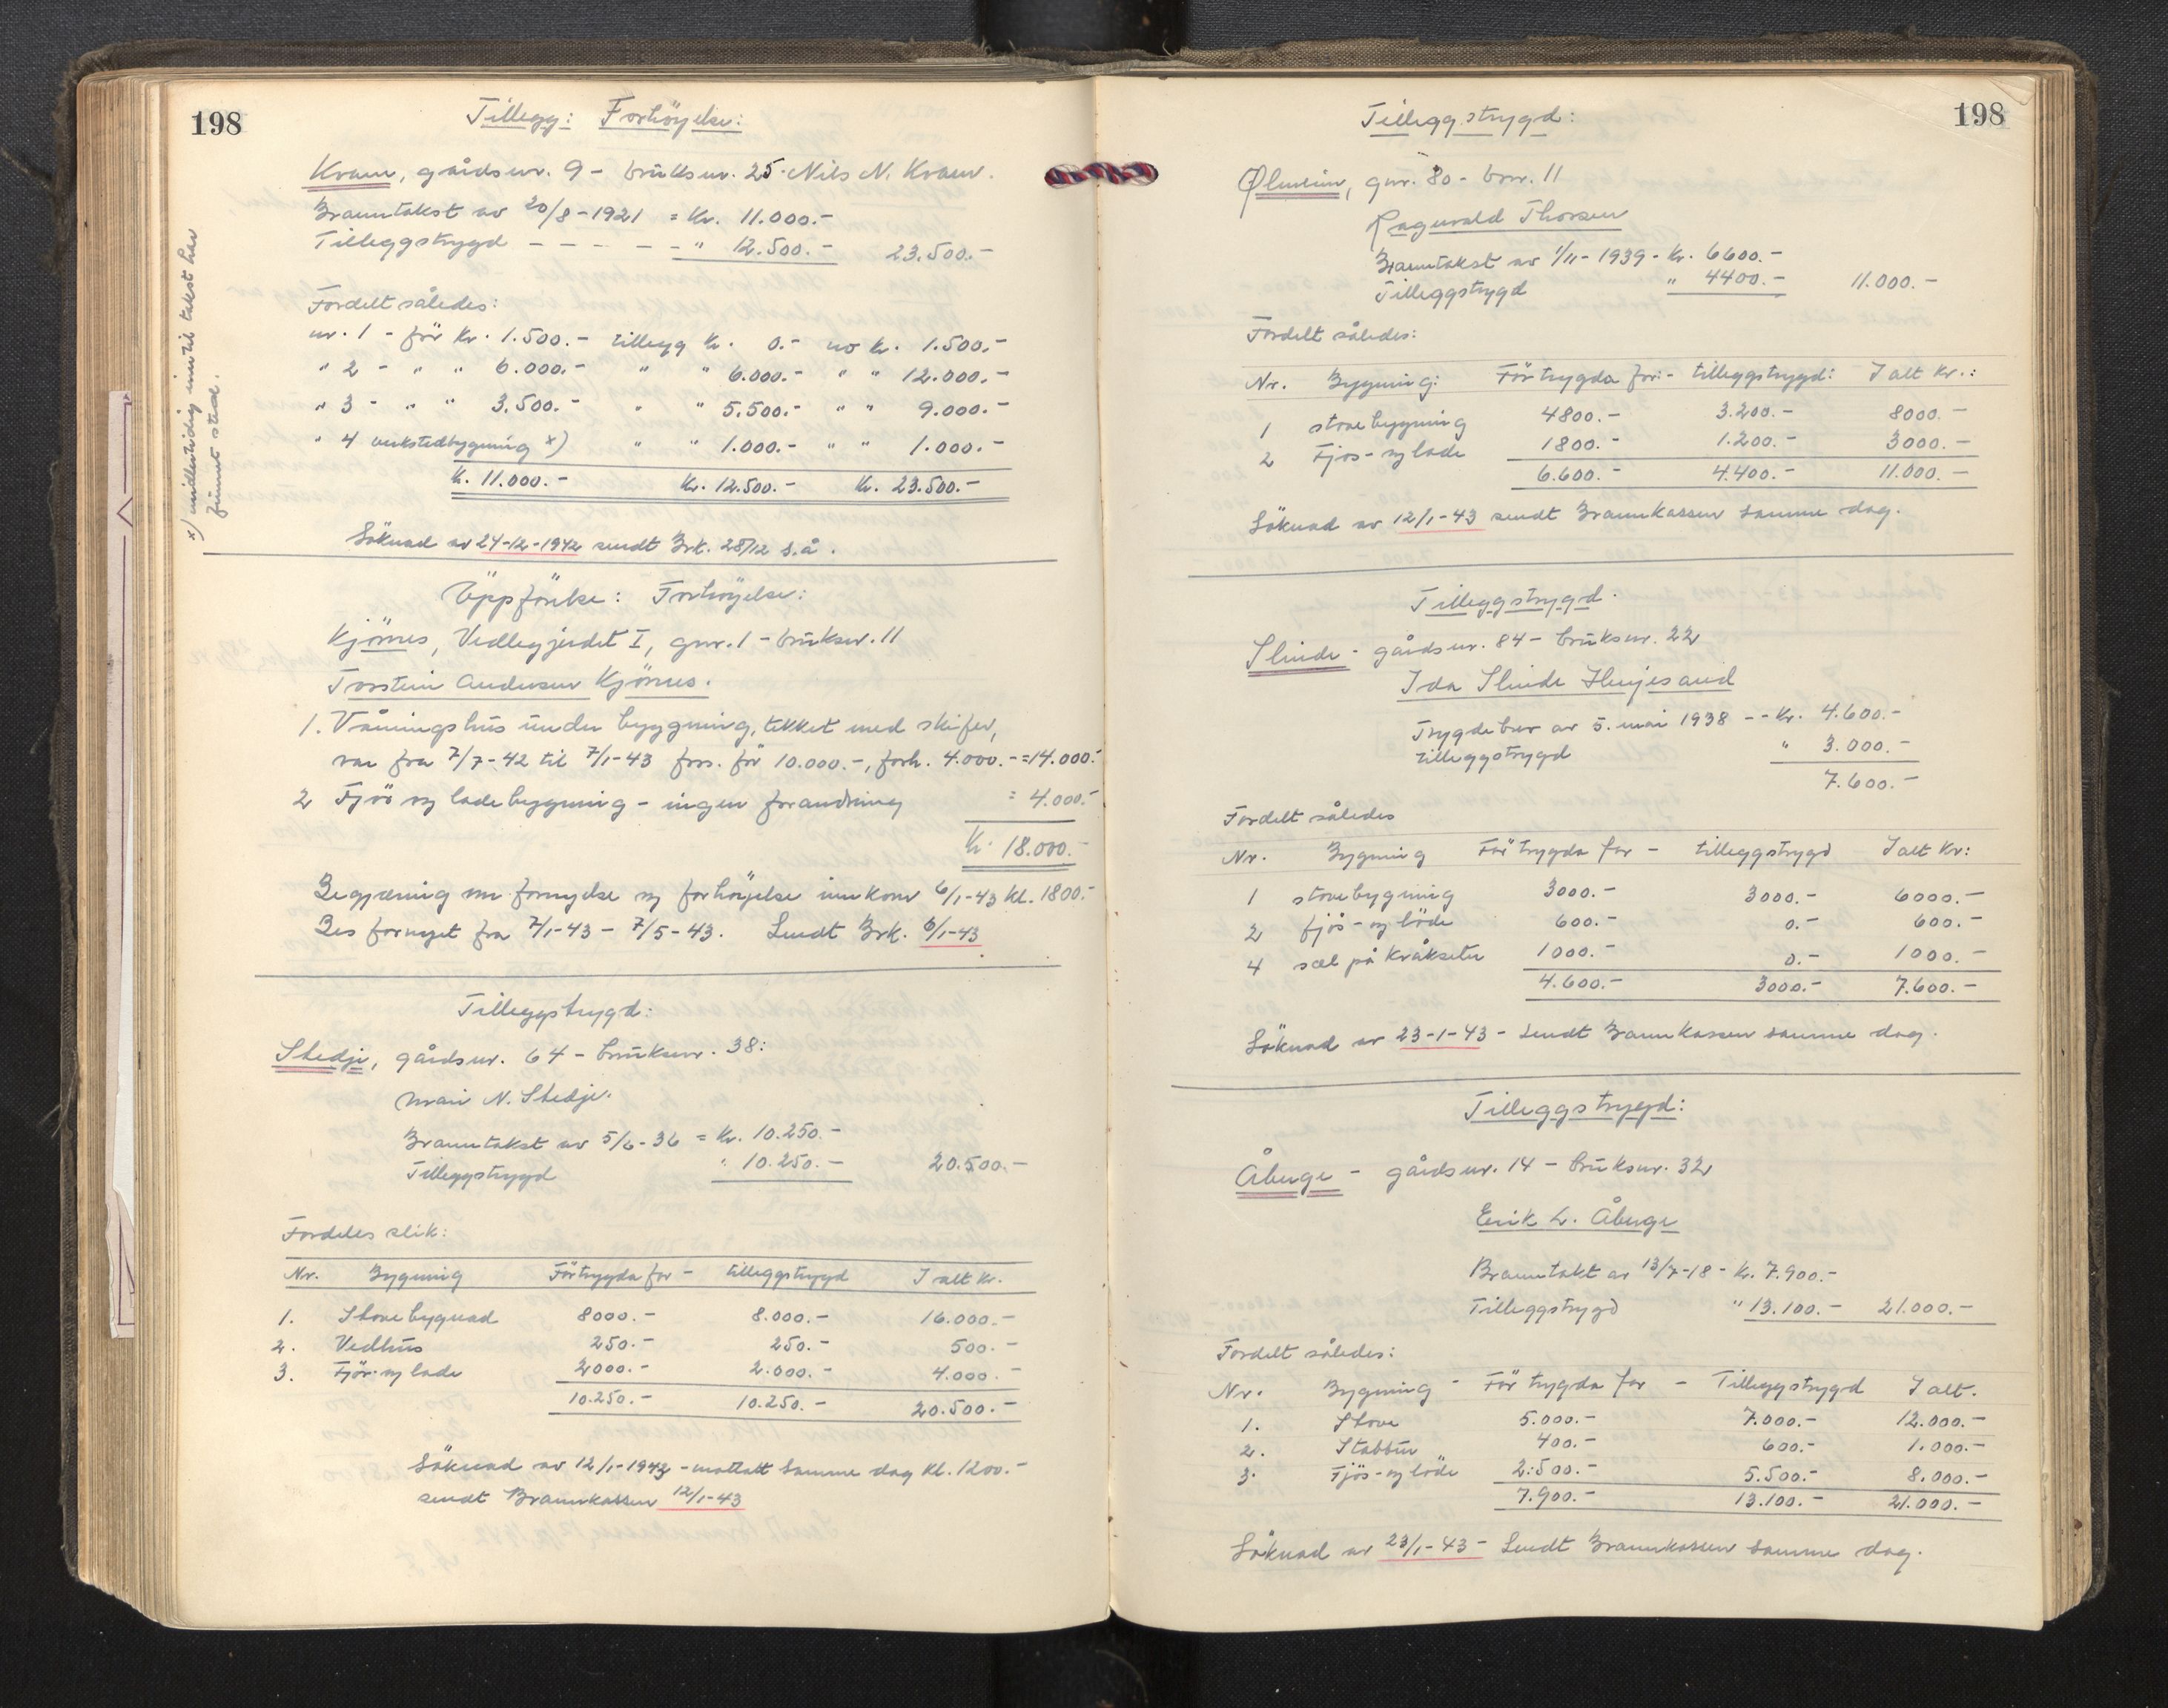 198
Tillegg: Forhöyelse:
Kvam, gårdsnr. 9 - bruksnr. 25. Nils N. Kvam.
Branntakst av 20/8-1921 = Kr. 11.000.-
Tilleggstrygd - - - - - " 12.500.- 23.500.-
Fordelt således:
nr. 1 - för Kr. 1.500.- tillegg Kr. 0.- no Kr. 1.500.-
" 2 - " " 6.000.- " " 6.000.- " " 12.000.-
" 3 - " " 3.500.- " " 5.500.- " " 9.000.-
" 4 verkstedbygning x) " " 1.000.- " " 1.000.-
Kr. 11.000.- Kr. 12.500.- Kr. 23.500.-
x) midlertidig inntil takst har
funnet sted.
Söknad av 24-12-1942 sendt Brk. 28/12 s.å.
Uppförelse: Forhöyelse:
Kjörnes, Vedlegjerdet I, gnr. 1 - bruksnr. 11
Torstein Andersen Kjörnes.
1. Våningshus under byggning, tekket med skifer,
var fra 7/7-42 til 7/1-43 fors. för 10.000.-, forh. 4.000.- =14.000.-
2 Fjös og ladebygning - ingen forandring = 4.000.-
Kr. 18.000.-
Begjæring om fornyelse og forhöyelse innkom 6/1-43 kl. 1800.-
Bes fornyet fra 7/1-43 - 7/5-43. Sendt Brk. 6/1-43
Tilleggstrygd:
Stedje, gårdsnr. 64 - bruksnr. 38:
Mari N. Stedje.
Branntakst av 5/6-36 = Kr. 10.250.-
Tilleggstrygd " 10.250.- 20.500.-
Fordeles slik:
Nr. Bygning Förtrygda for - tilleggstrygd I alt Kr.
1. Stovebygnad 8000.- 8.000.- 16.000.-
2. Vedhus 250.- 250.- 500.-
3. Fjös- og lade 2000.- 2.000.- 4.000.-
10.250.- 10.250.- 20.500.-
Söknad av 12/1-1943 - mottatt samme dag kl. 1200.-
sendt Brannkassen 12/1-43
198
Tilleggstrygd:
Ølmeim, gnr. 80 - bnr. 11
Ragnvald Thorsen
Branntakst av 1/11-1939 - Kr. 6600.-
Tilleggstrygd " 4400.- 11.000.-
Fordelt således:
Nr. Bygning: Förtrygda for:- tilleggstrygd: I alt Kr.:
1 stovebygning 4800.- 3.200.- 8000.-
2 Fjos- og lade 1800.- 1.200.- 3000.-
6.600.- 4.400.- 11.000.-
Söknad av 12/1-43 sendt Brannkassen samme dag.
Tilleggstrygd.
Slinde - gårdsnr. 84 - bruksnr. 22
Ida Slinde Henjesand
Trygdebev av 5. mai 1938 -- Kr. 4.600.-
tilleggstrygd " 3.000.-
7.600.-
Fordelt således
Nr. Bygning För trygda for - tilleggstrygd I alt Kr:
1 stovebygning 3000.- 3000.- 6000.-
2 fjös- og löde 600.- 0.- 600.-
4 sæl på Kråksete 1000.- 0.- 1000.-
4.600.- 3000.- 7.600.-
Söknad av 23-1-43 - Sendt Brannkassen samme dag.
Tilleggstrygd:
Åberge - gårdsnr. 14 - bruksnr. 32
Erik L. Åberge
Branntakt av 13/7-18 - Kr. 7.900.-
Tilleggstrygd " 13.100.- 21.000.-
Fordelt således:
Nr. Bygning - För trygda for - Tilleggstrygd I alt.
1. Stove 5.000.- 7.000.- 12.000.-
2. Stabbur 400.- 600.- 1.000.-
3. Fjös- og löde 2.500.- 5.500.- 8.000.-
7.900.- 13.100.- 21.000.-
Söknad av 23/1-43 - Sendt Brannkassen samme dag.